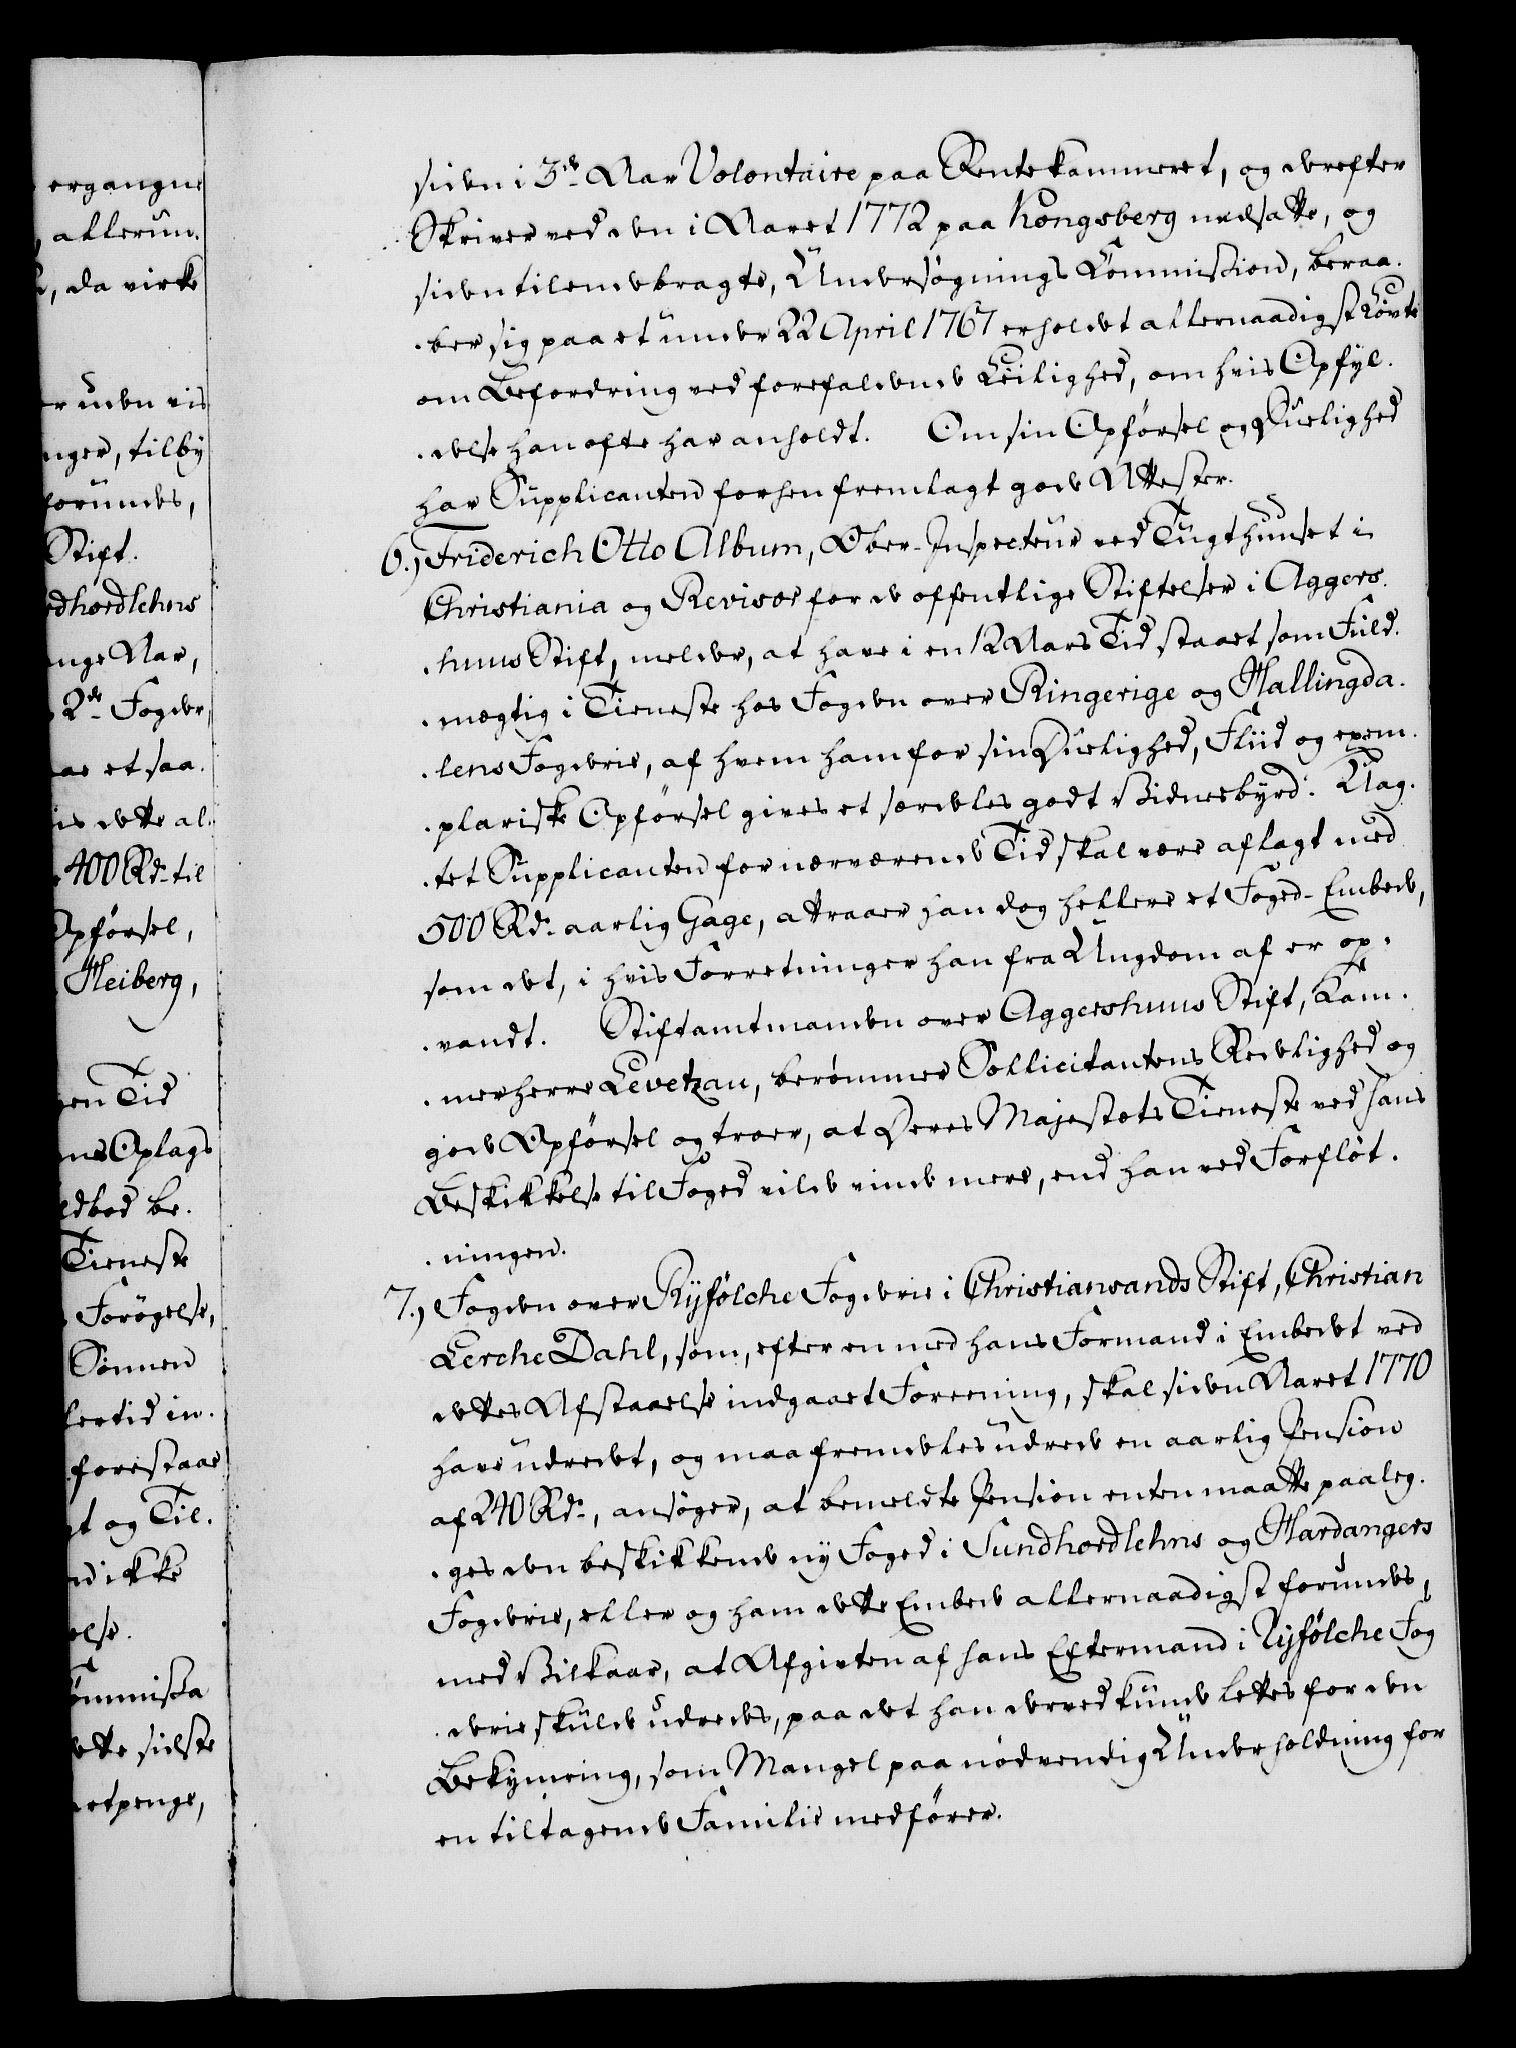 ergangne
, allerun.
, da virke
er uden vis
nger, tilby
forundes,
Stift.
dhordlehns
nge Aar,
2de Fogder,
et saa.
is dette al.
400 Rdr til
Opförsel,
Heiberg,
en Tid
ns Oplags
dbod be.
Tieneste
Forögelse,
Sönnen
lertid in.
forestaae
t og Til.
d ikke
else.
ommissa
ette sidste
etpenge,
siden i 3de Aar Volontaire paa Rentekammeret, og derefter
Skriver ved den i Aaret 1772 paa Kongsberg nedsatte, og
siden tilendebragte, Undersögnings Commission, beraa.
.ber sig paa et under 22 April 1767 erholdet allernaadigst Lövte
om Befordring ved forefaldende Leilighed, om hvis Opfyl.
.delse han ofte har anholdt. Om sin Opförsel og Duelighed
har Supplicanten forhen fremlagt gode Attester.
6.) Friderich Otto Album, Ober-Inspecteur ved Tugthuuset i
Christiania og Revisor for de offentlige Stiftelser i Aggers.
.huus Stift, melder, at have i en 12 Aars Tid staaet som Fuld.
.mægtig i Tieneste hos Fogden over Ringerige og Hallingda.
.lens Fogderie, af hvem ham for sin Duelighed, Fliid og exem.
.plariske Opförsel gives et særdeles godt Vidnesbyrd. Uag.
.tet Supplicanten for nærværende Tid skal være aflagt med
500 Rdr aarlig Gage, attraaer han dog hellere et Foged-Embede,
som det, i hvis Forretninger han fra Ungdom af er op.
.vandt. Stiftamtmanden over Aggershuus Stift, Kam.
.merherre Levetzau, berömmer Sollicitantens Redelighed og
gode Opförsel og troer, at Deres Majestæts Tieneste ved hans
Beskikkelse til Foged vilde vinde mere, end han ved Forfløt.
.ningen.
7.) Fogden over Ryfölche Fogderie i Christiansands Stift, Christian
Lerche Dahl, som, efter en med hans Formand i Embedet ved
dettes Afstaaelse indgaaet Foreening, skal siden Aaret 1770
have udredet, og maa fremdeles udrede en aarlig Pension
af 240 Rdr, ansöger, at bemeldte Pension enten maatte paaleg.
.ges den beskikkende ny Foged i Sundhordlehns og Hardangers
Fogderie, eller og ham dette Embede allernaadigst forundes,
med Vilkaar, at Afgivten af hans Eftermand i Ryfölche Fog
.derie skulde udredes, paa det han derved kunde lettes for den
Bekymring, som Mangel paa nödvendig Underholdning for
en tiltagende Familie medförer.